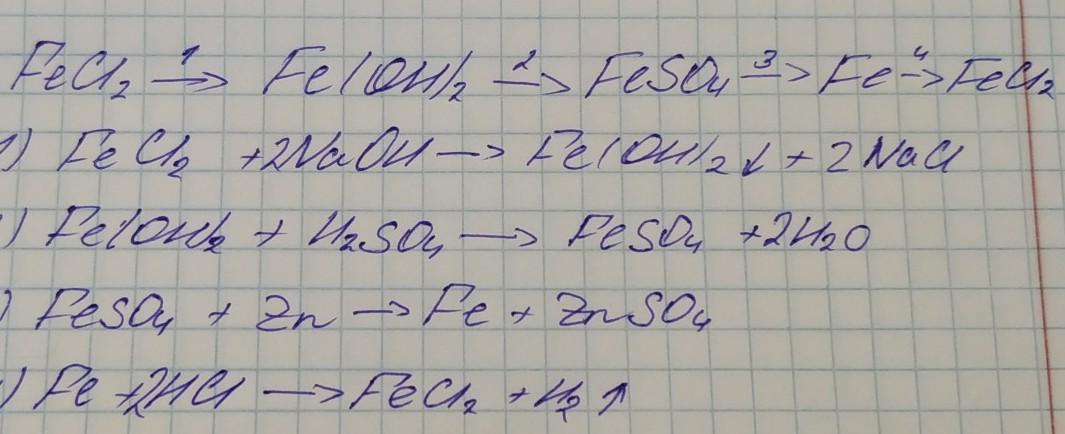 FeCl₂ →¹ Fe(OH)₂ →² FeSO₄ →³ Fe →⁴ FeCl₂
1) FeCl₂ + 2NaOH → Fe(OH)₂↓ + 2NaCl
) Fe(OH)₂ + H₂SO₄ → FeSO₄ + 2H₂O
) FeSO₄ + Zn → Fe + ZnSO₄
) Fe + 2HCl → FeCl₂ + H₂↑